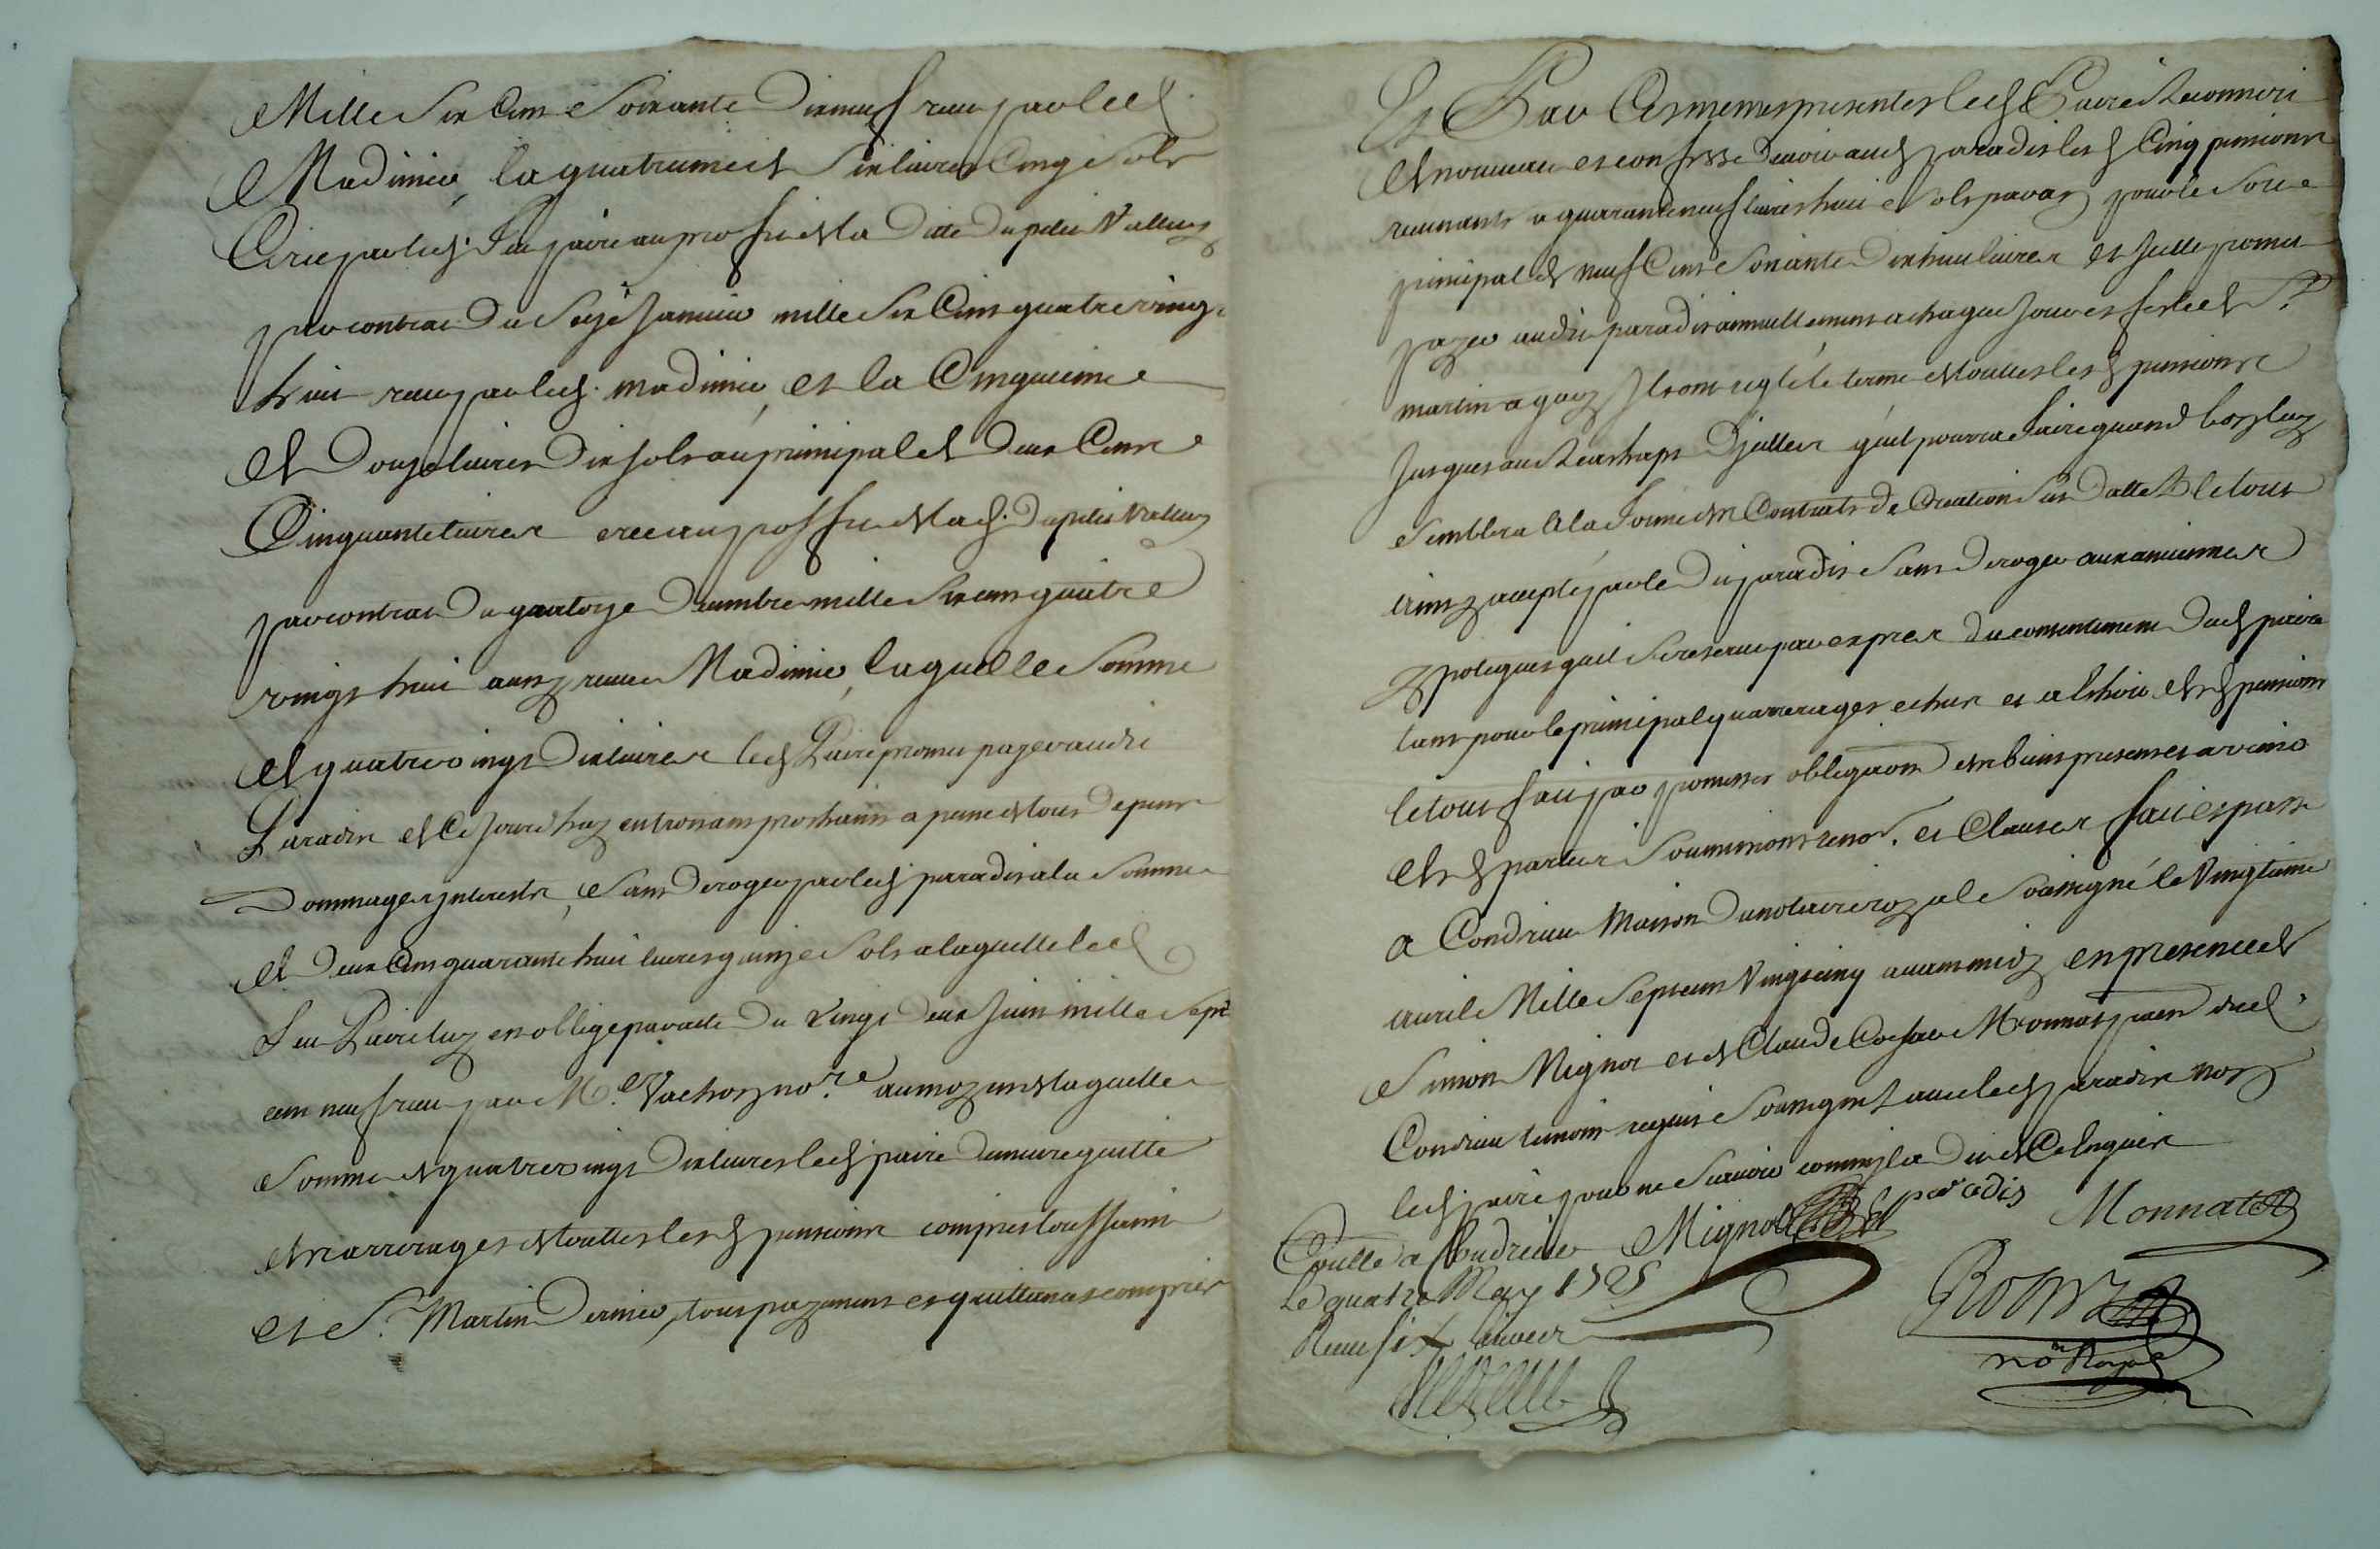 Mille six cent soixante dix neuf receu par led
Madinier, la quatrieme de six livres cinq sols
Crée par led. feu paire au profit de la ditte Dupetis Valluy
par contrat du seize janvier mille six cent quatre vingt
huit receu par led. madinier, et la cinquieme
de douze livres dix sols au principal de deux cent
Cinquante livres creé au proffit de lad. Dupetis Valluy
par contrat du quatorze decembre mille six cent quatre
vingt huit aussy receu Madinier, laquelle somme
de quatre vingt dix livres led Paire promet payer audit
Paradis de ce jourdhuy en trois ans prochains a peine de tous depens
Dommages jnterests, sans deroger par led paradis a la somme
de deux cent quarante huit livres quinze sols a laquelle led
feu Paire luy est obligé par acte du vingt deux juin mille sept
cent neuf receu par Me Vachon nore au moyen de laquelle
somme de quatre vingt dix livres led paire demeure quitte
des arrerages de touttes lesd pensions compris toussaint
et St Martin dernier, tous payements et quittances compris
Et Par ces mesmes presentes led Paire a reconnu
de nouveau et confessé devoir aud paradis lesd cinq pensions
revenants a quarante neuf livres huit sols par an pour le sort
principal de neuf cent soixante dix huit livres et jcelle promet
payer audit paradis annuellement a chaque jour et feste de St
martin a quoy jls ont reglé le terme de touttes lesd pensions
jusques au rachapt djcelles qúil pourra faire quand bon luy
semblera a la forme des contrats de creation sus dattes le tout
ainsy accepté par le dit paradis sans deroger aux anciennes
ypoteques quil se reserve par exprés du consentement dud paire
tant pour le principal quarrerages echus et a Eschoir desd pensions
le tout fait par promesses obligaon des biens presents et a venir
desd parties soumissions renon. et clauses fait et passé
a Condrieu Maison du notaire royal soussigné le vingtieme
avril Mille sept cent vingt cinq avant midy en presence de
Simon Mignot et de Claude Monnat dud.
Condrieu temoins requis soussignez avec led paradis non
led paire pour ne scavoir comm jl a dit de ce Enquis
Mignot paradis Monnat
Conllé a Condrieu
Le quatre May 1725
Receu six livres
nore Royal